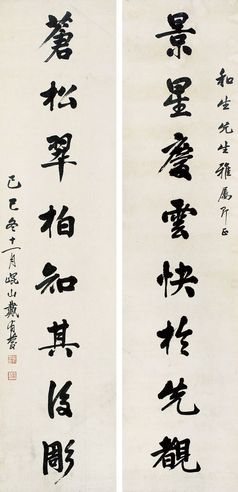 和生先生雅屬即正
景星慶雲快於先覩
蒼松翠柏知其後彫
己巳冬十一月崐山戴有齡